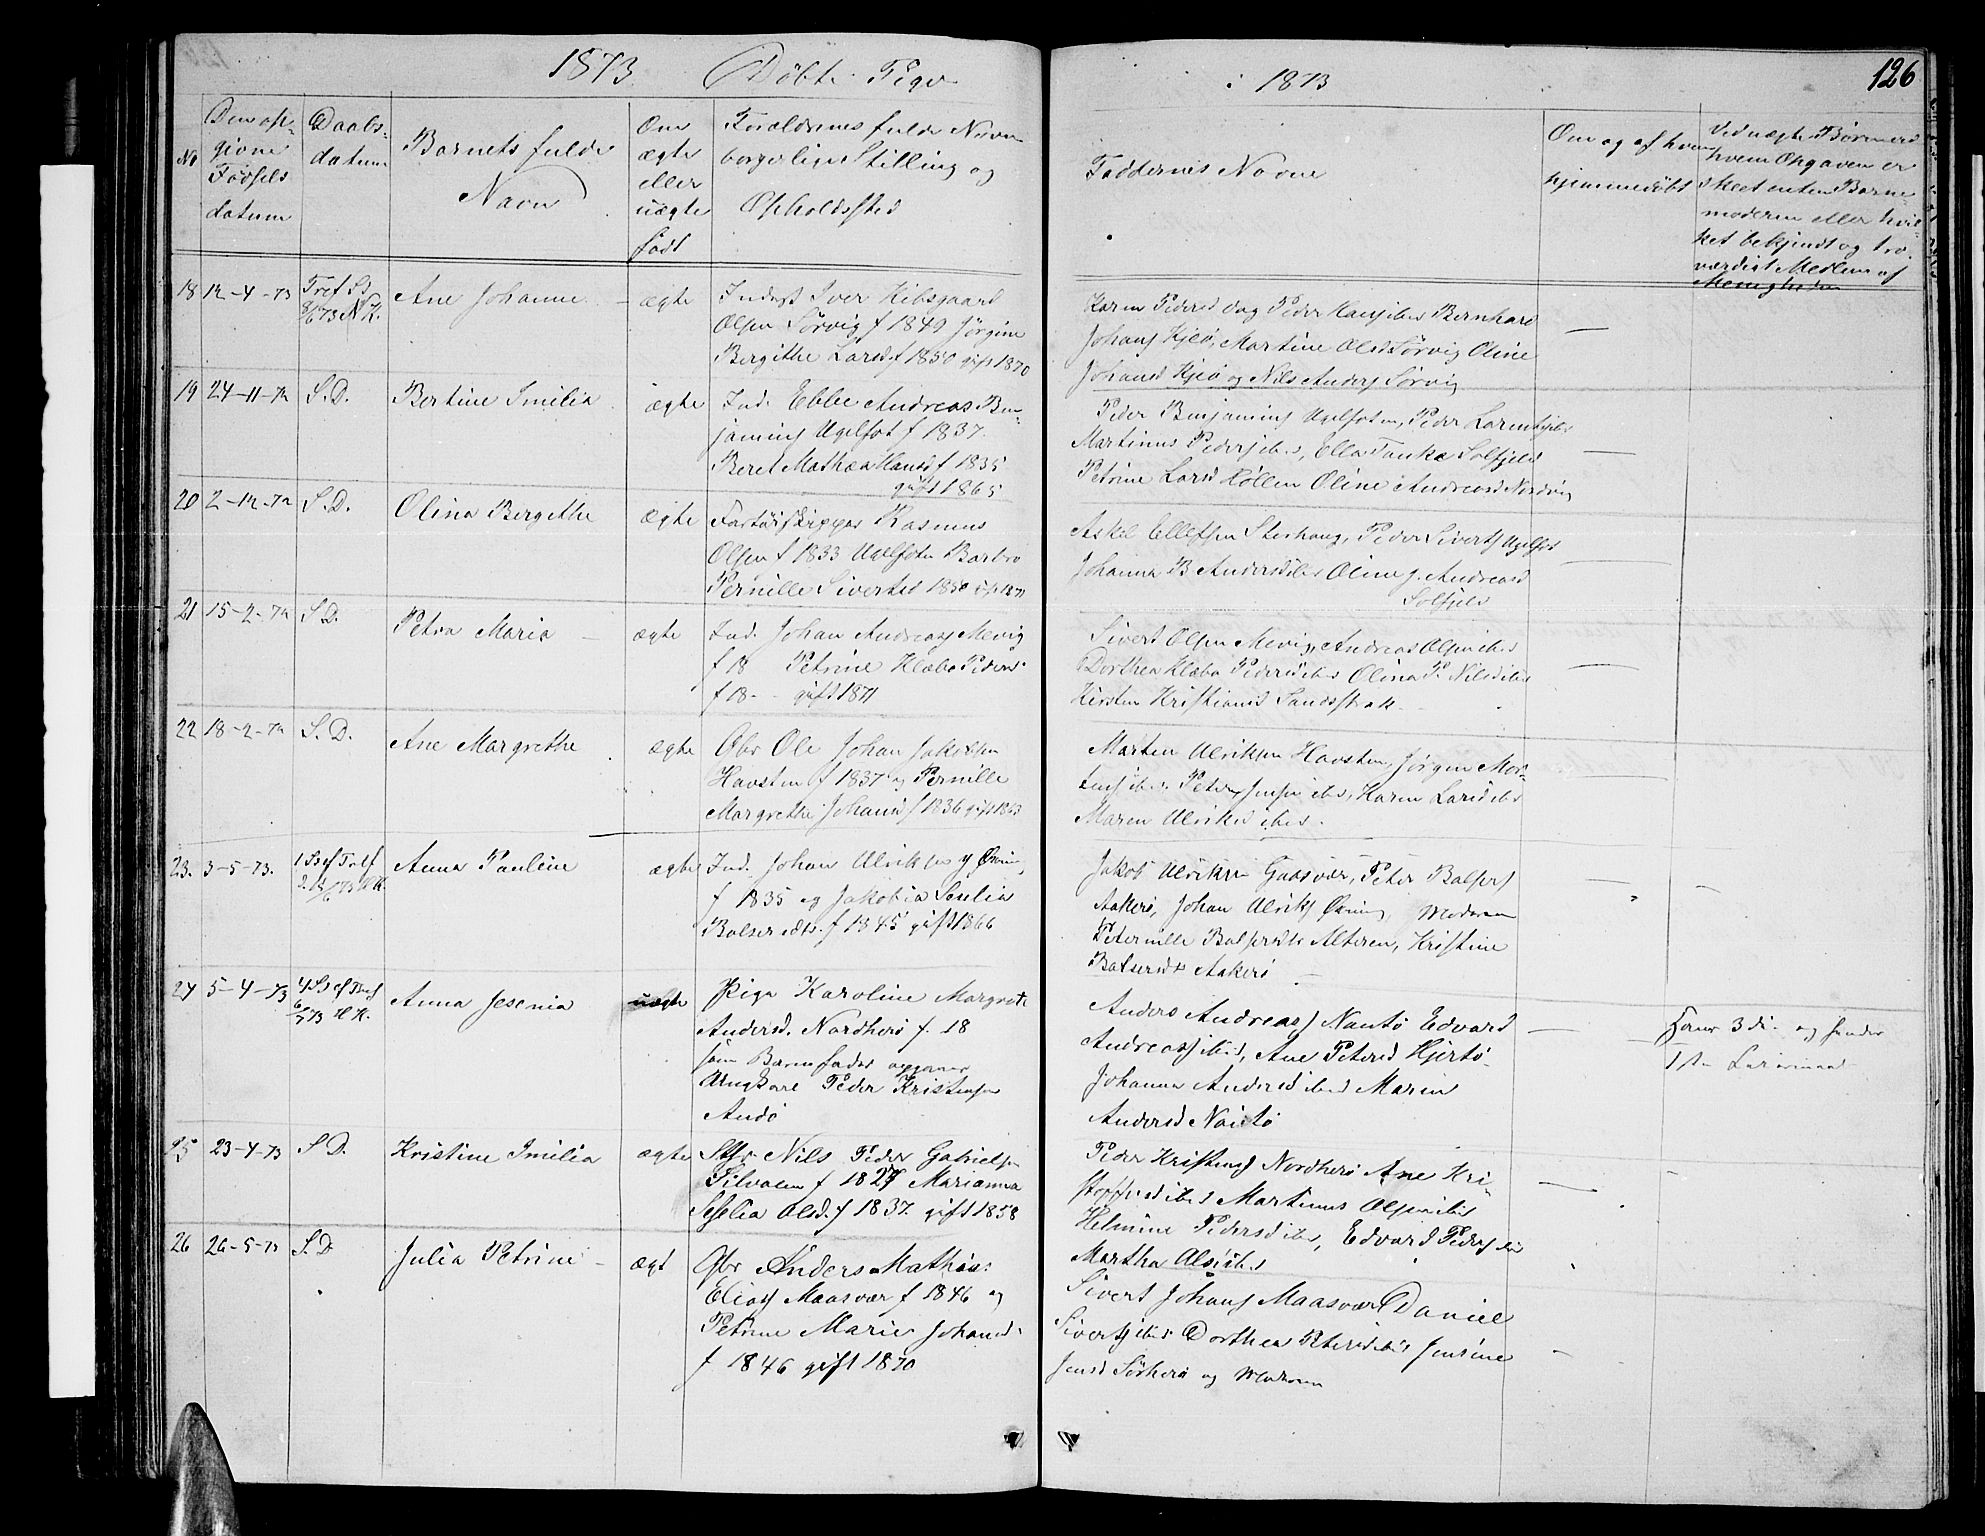 1873 Döbte Piger
i 1873
126
No
Den op-
givne
Födsels
datum
Daabs-
datum
Barnets fulde
Navn
Om
ægte
eller
uægte
født
Forældrenes fulde Navn
borgerlige Stilling og
Opholdssted
Faddernes Navne
Om og af hvem
hjemmedöbt
Ved uægte Börn ved
hvem Opgaven er
skeet enten Barne-
moderen eller hvil-
ket bekjendt og tro-
værdigt Medlem af
Menigheden
18 12-4-73 Tref Sö 8/6 73 N K. Ane Johanne ægte
Inderst Iver Kibsgaard
Olsen Sörvig f 1849 Jörgine
Bergithe Larsd f 1850 gift 1870
Karen Pedersd Peder Hansibid Bernhard
Johans Hjelö, Martine Olsd Sörvig Oline
Johansd Hjelö og Nils Anders Sörvig
—
19 24-11-72 S. D. Bertine Imilia ægte
Ind. Ebbe Andreas Ben-
jamins Ugelfot f 1837.
Beret Mathea Hansd f 1835
gift 1865
Peder Binjamins Ugelfoten, Peder Larsen
Martinus Pedersibid, Ella Tanke Solfjeld
Petrine Larsd Röllen Oline Andreasd Nordvig
—
20 2-12-72 S. D. Olina Bergethe ægte
Fartöiskipper Rasmus
Olsen f 1833 Ugelfoten Barbro
Pernille Sivertsd 1850 gift 1871
Askel Ellefsen Stenhaug, Peder Siverts Ugelfot
Johanna B Andersdibid Oline J. Andreasd
Solfjeld
—
21 15-2-72 S. D. Petra Maria — ægte
Ind. Johan Andreas Mevig
f 18 Petrine Klæbo Peders
f 18- - gift 1871
Sivert Olsen Mevig, Andreas Olsen ibid
Dorthea Klæbo Pedersdibid Olina P. Nilsdibid
Kirsten Kristiansd Sandsstrak
—
22 18-2-72 S. D. Ane Margrethe ægte
Gbr Ole Johan Jakobsen
Havsten f 1837 og Pernille
Margrethe Johansd f 1836 gift 1863
Marten Ulriksen Havsten, Jörgen Mor-
tens ibid Peter Jensen ibid, Karen Larsd ibid
Maren Ulriksd ibid.
—
23. 3-5-73. Anna Pauline ægte
Ind. Johan Ulriksen
f 1835 og Jakobia Seselia
Balsersdtr. f 1845 gift 1866
Jakob Ulriksen Gaasvær, Peter Balsers
Aakerö, Johan Ulriks Moderen
Peternille Balsersdtr Alteren, Kristine
Balsersdtr Aakerö
— —
24 5-4-73 Anna Jesenia uægte
Pige Karoline Margrete
Andersd. Nordherö f. 18
som Barnefader opgives
Ungkarl Peder Kristensen
Andö
Anders Andreas Nautö Edvard
Andreas ibid, Ane Petersd Hjertö
Johanna Andersd ibid Maren
Andersd Nautö
—
3 di- og
25 23-4-73 S. D. Kristine Imilia ægte
Nils Peder Gabrielsen
Silvalen f 1827 Marianna
Seselia Olsd. f 1837. gift 1858
Peder Kristens Nordherö Ane Kri-
stoffersd ibid Martinus Olsen ibid
Helmine Pedersdibid, Edvard Peders ibid
Martha Olsdibid
—
26 26-5-73 S. D Julia Petrine — ægt
Gbr Anders Mathias
Elias Maasvær f 1846 og
Petrine Marie Johansd
f 1846 gift 1870
Sivert Johans Maasvær Daniel
Siverts ibid Dorthea Petersdibid Jensine
Jensd Sörherö og Moderen
—